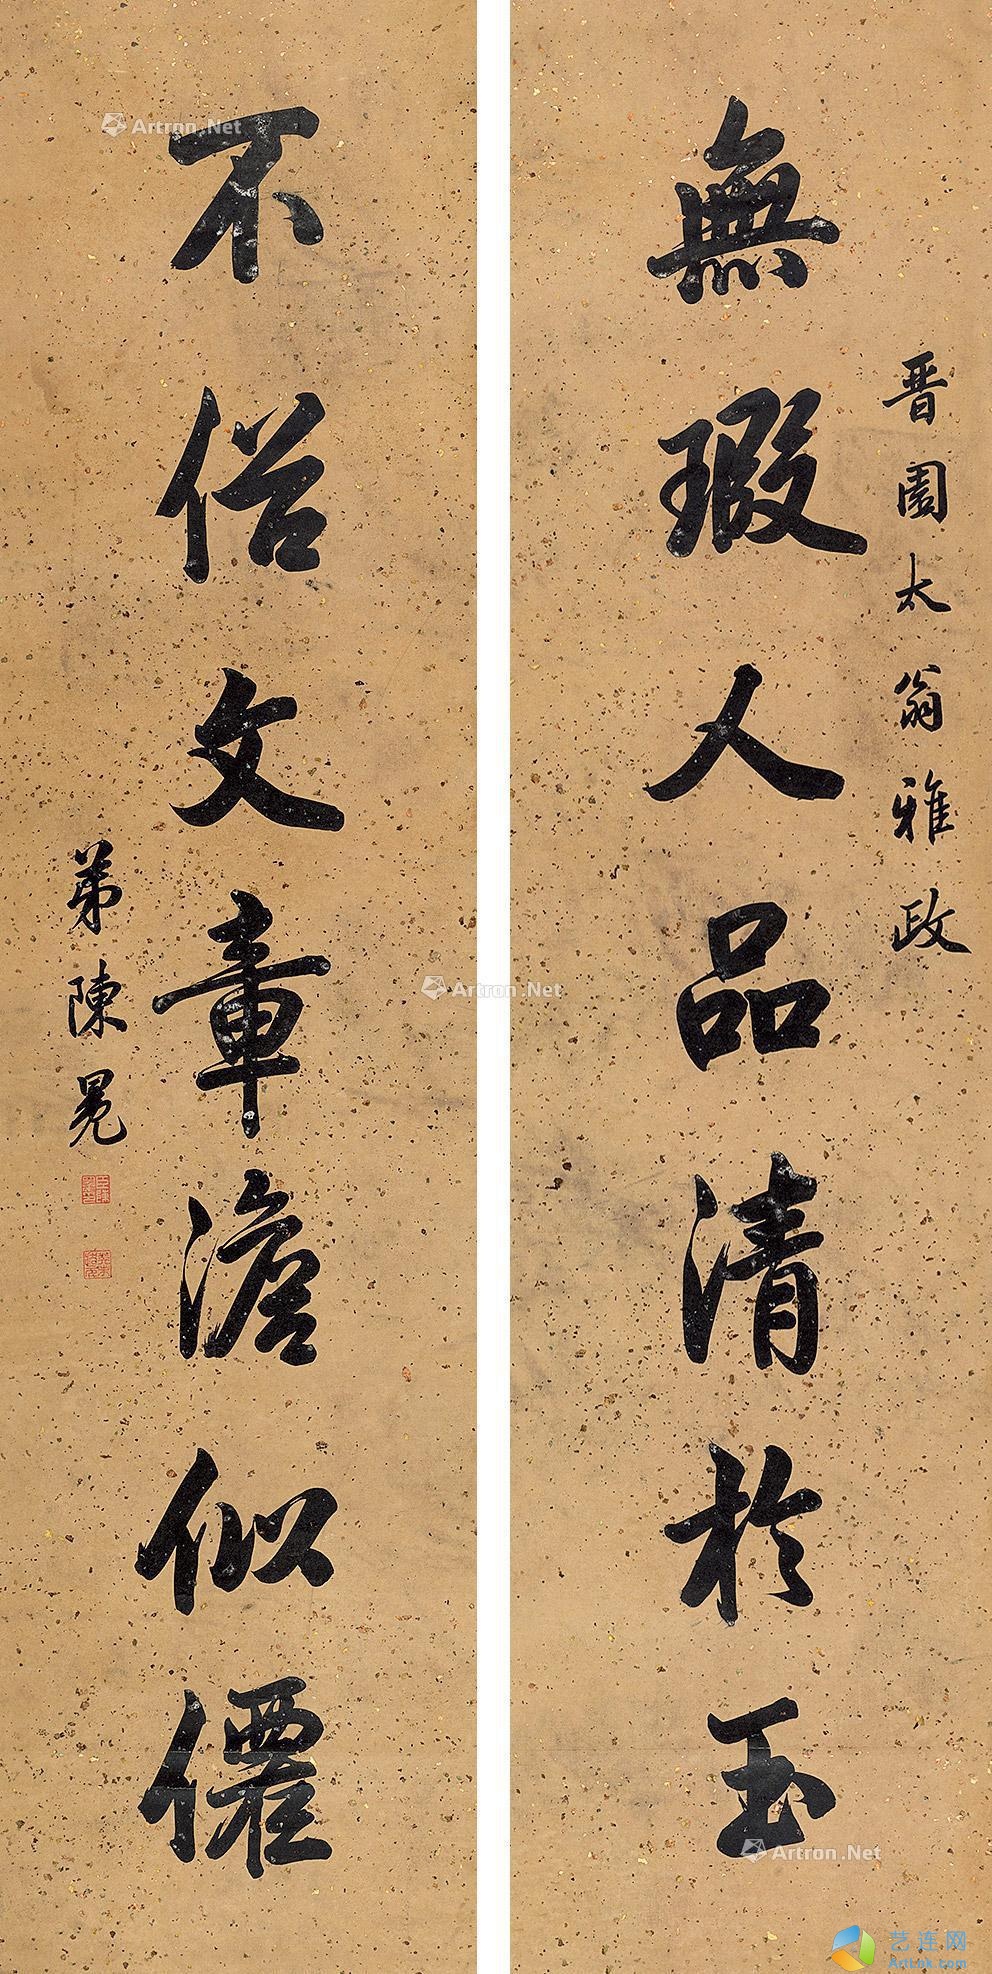 晋園太翁雅政
無瑕人品清於玉
不俗文章澹似僊
弟陳冕
Artron.Net
Artron.Net
Artron.Net
艺连网
ArtLnk.com